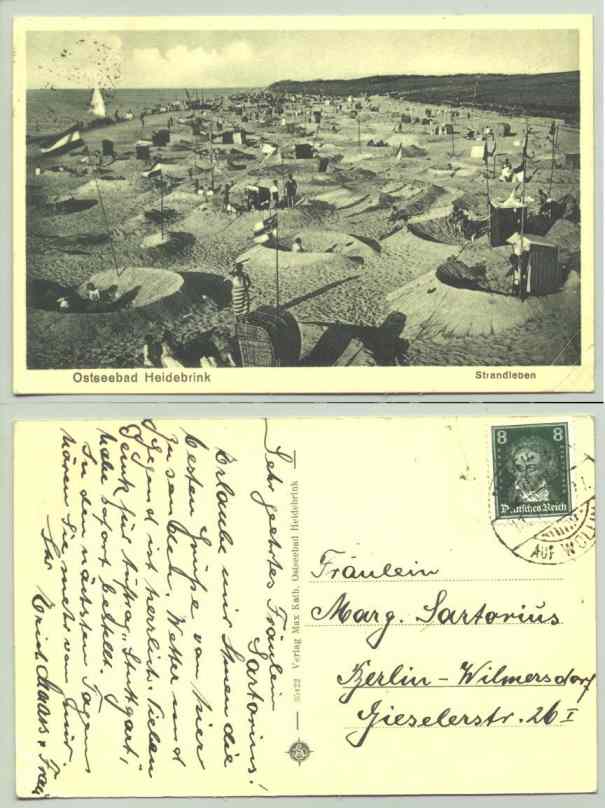 Ostseebad Heidebrink
Strandleben
Sehr geehrtes Fräulein
Sartorius!
Erlaube mir Ihnen die
besten Grüße von hier
zu senden. Wetter und
Gegend ist herrlich. Vielen
Dank für Auftrag, Stuttgart,
habe sofort bestellt.
In den nächsten Tagen
hören Sie mehr von mir.
Ihr Erich Maass u. Frau
35422 Verlag Max Kath, Ostseebad Heidebrink
8 8
Deutsches Reich
AUF WOLLIN
Fräulein
Marg. Sartorius
Berlin-Wilmersdorf
Gieselerstr. 26 I